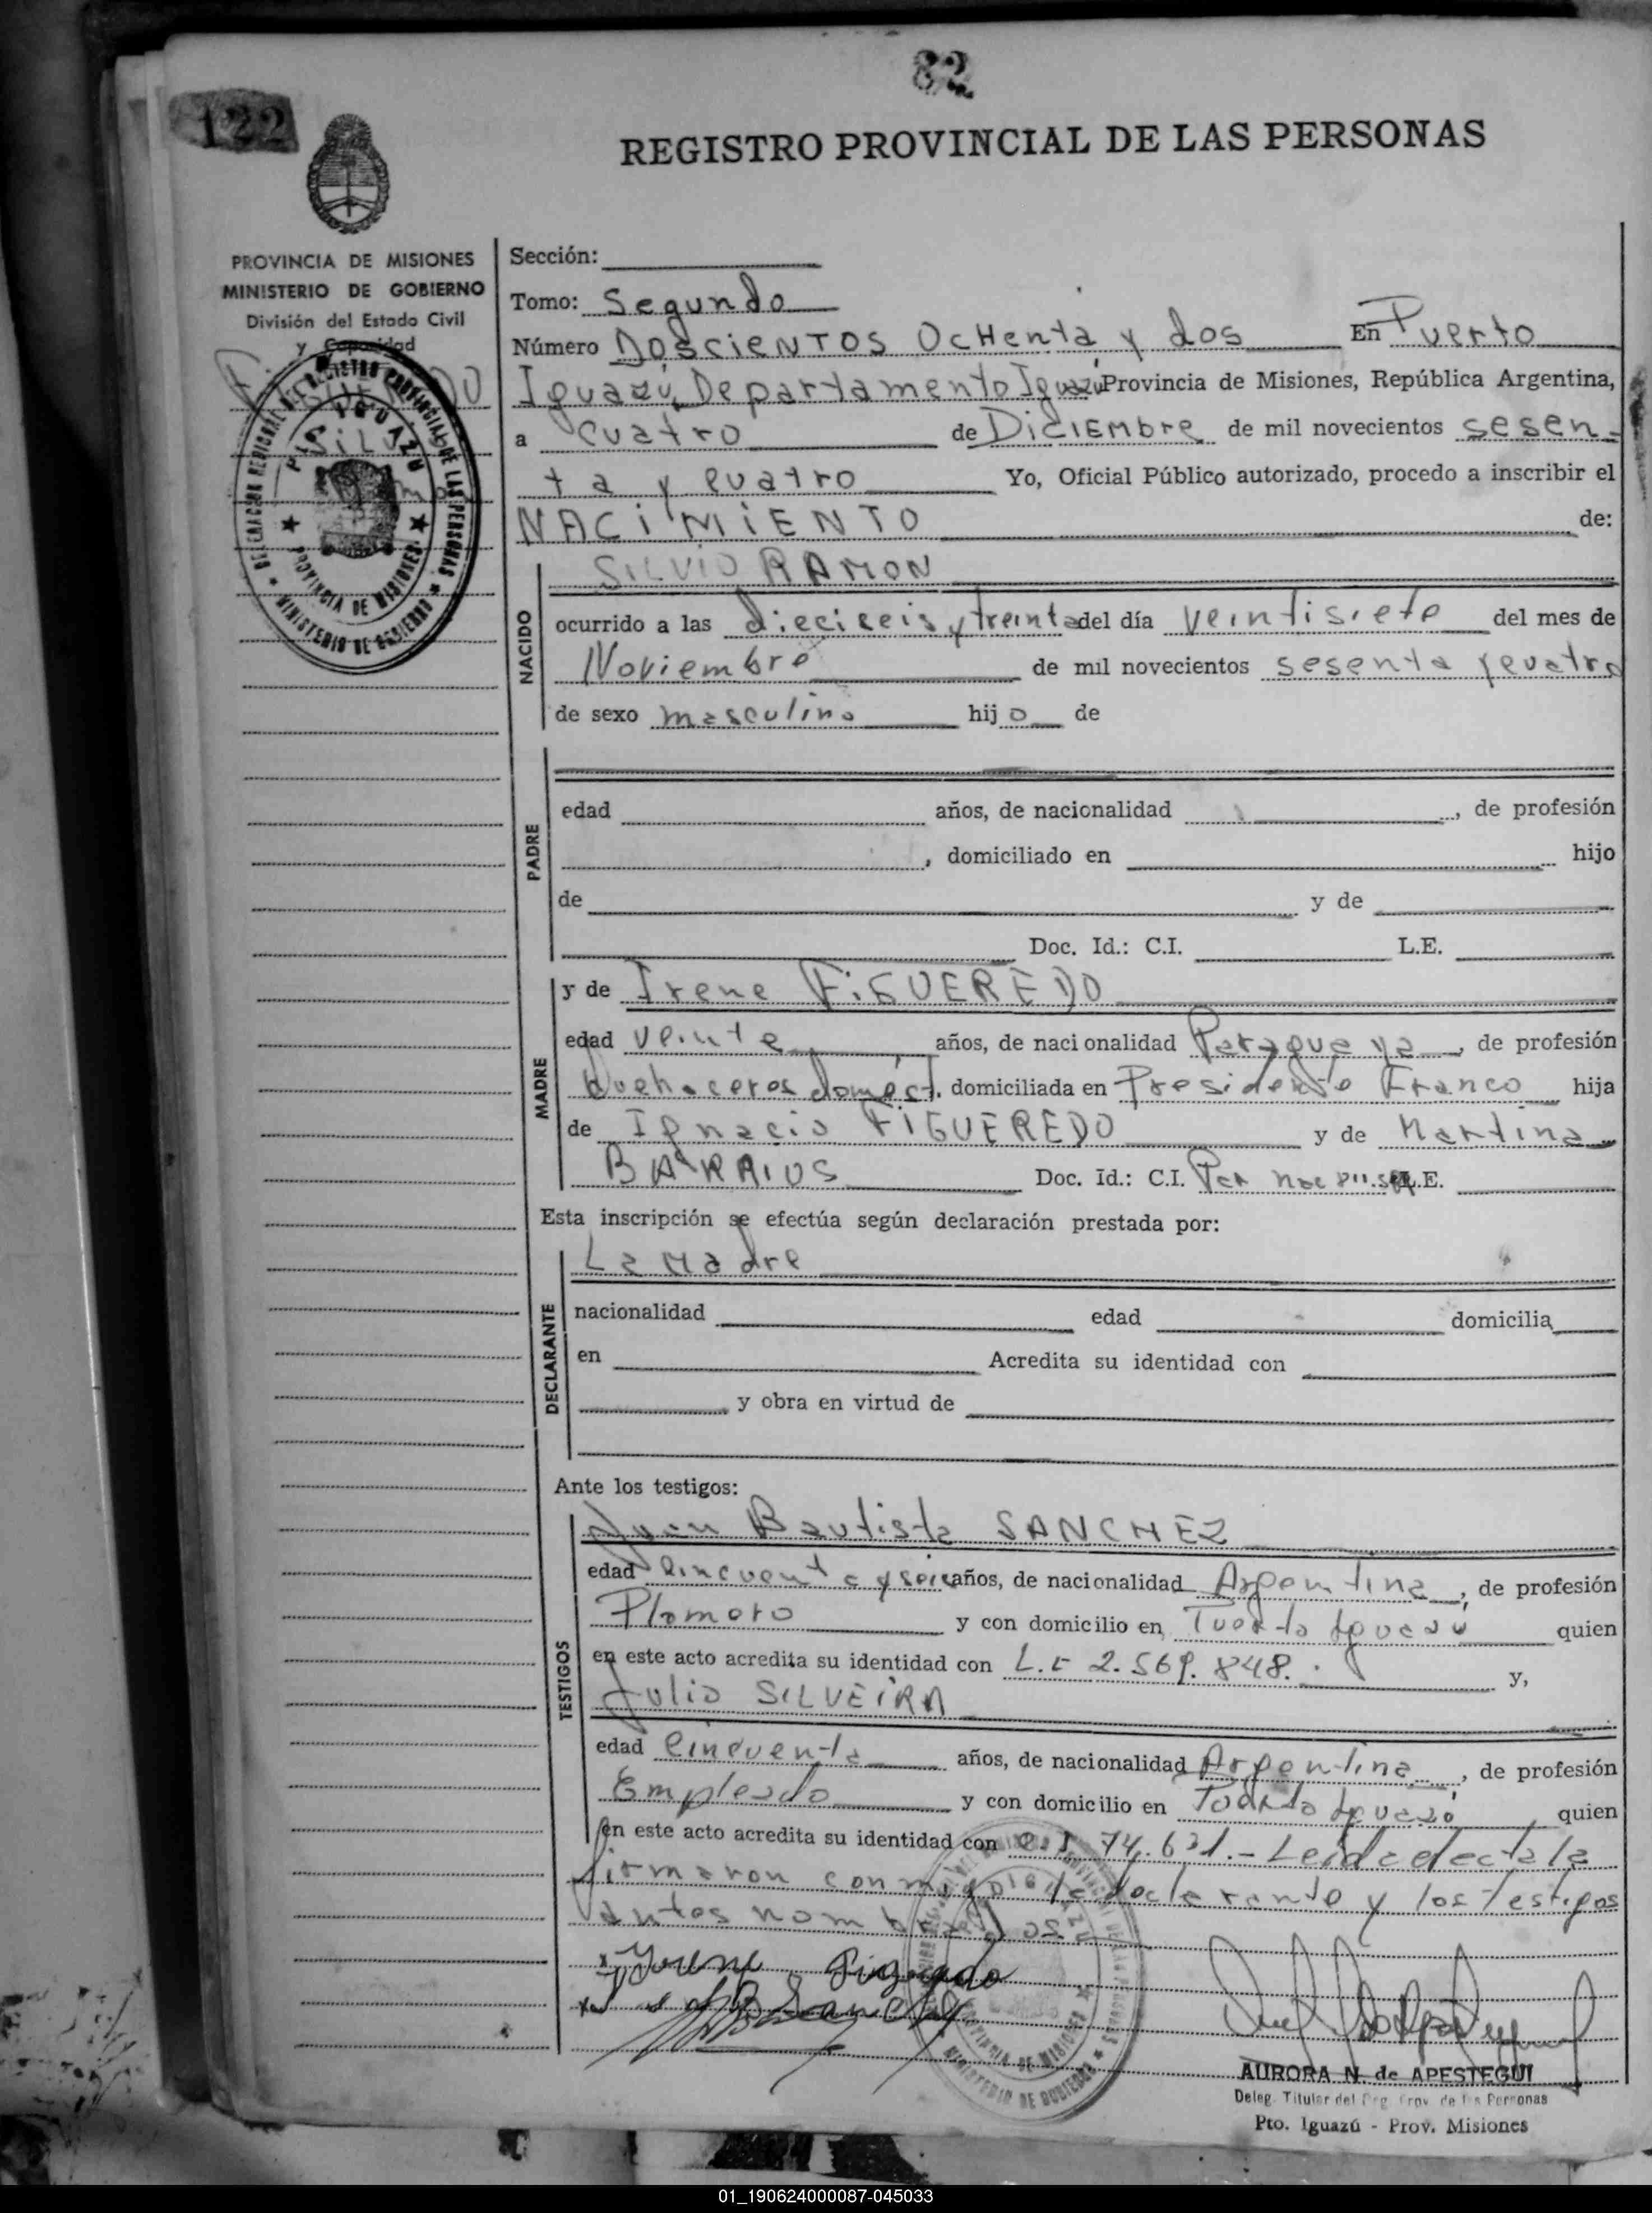 82
122
REGISTRO PROVINCIAL DE LAS PERSONAS
PROVINCIA DE MISIONES
MINISTERIO DE GOBIERNO
División del Estado Civil
y Capacidad
Sección:
Tomo: Segundo
Número Doscientos Ochenta y dos En Puerto
Iguazú, Departamento Iguazú Provincia de Misiones, República Argentina,
a cuatro de Diciembre de mil novecientos sesen-
ta y cuatro Yo, Oficial Público autorizado, procedo a inscribir el
NACIMIENTO de:
NACIDO
SILVIO RAMON
ocurrido a las dieciseis y treinta del día veintisiete del mes de
Noviembre de mil novecientos sesenta y cuatro
de sexo masculino hijo de
PADRE
edad años, de nacionalidad , de profesión
, domiciliado en hijo
de y de
Doc. Id.: C.I. L.E.
MADRE
y de Irene FIGUEREDO
edad veinte años, de nacionalidad Paraguaya, de profesión
Quehaceres domést. domiciliada en Presidente Franco hija
de Ignacio FIGUEREDO y de Martina
BARRIOS Doc. Id.: C.I. L.E.
Esta inscripción se efectúa según declaración prestada por:
DECLARANTE
La Madre
nacionalidad edad domicilia
en Acredita su identidad con
y obra en virtud de
Ante los testigos:
TESTIGOS
Juan Bautista SANCHEZ
edad cincuenta y seis años, de nacionalidad Argentina, de profesión
Plomero y con domicilio en Puerto Iguazú quien
en este acto acredita su identidad con L.E 2.569.848. y,
Julio SILVEIRA
edad cincuenta años, de nacionalidad Argentina, de profesión
Empleado y con domicilio en Puerto Iguazú quien
en este acto acredita su identidad con C.I 74.631.- Leida el acta la
firmaron conmigo la declarante y los testigos
antes nombrados
Irene
AURORA N. de APESTEGUI
Deleg. Titular del Reg. Prov. de las Personas
Pto. Iguazú - Prov. Misiones
01_190624000087-045033